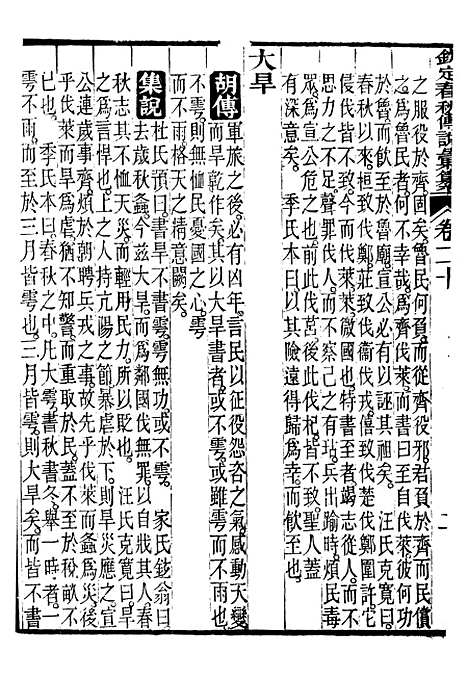 欽定春秋傳說彙纂 卷二十 二
之服役於齊固矣魯民何負而從齊役邪君負於齊而民償
之為魯民者何不幸哉為齊伐萊而書至自伐萊彼何功
於魯而飲至於魯廟宣公必有以誣其祖矣 汪氏克寬曰
春秋以來桓致伐鄭莊致伐衞伐戎僖致伐楚伐鄭圍許
侵伐皆不致今而伐萊微國也特書至者竭志從人而
思力之不足聲罪伐人而不察己之有瑕出踰時煩民毒
衆為惡大矣宣公危之也前此伐莒皆不致至人蓋
有深意矣 季氏本曰以其涉險遠得歸為幸而飲至也
大旱
胡傳 軍旅之後必有凶年言民以征役怨咨之氣感動天變
而旱乾作矣其以大旱書者或不雩或雖雩而不雨也
不雩則無恤民憂國之心雩
而不雨格天之精意闕矣
集說 杜氏預曰書旱不書雩雩無功或不雩 家氏鉉翁曰
去歲秋螽今茲大旱而為鄰國伐無罪以自戕其人春
秋志其不恤天災而輕用民力所以貶也 汪氏克寬曰
公之為言悍也上之人持亢陽之節暴虐於下則旱災應之宣
公連歲事齊煩於朝聘兵戎之事故先乎伐萊而螽為災後
乎伐萊而旱為虐猶不知警而重取於民蓋不至於稅畝不
已也 季氏本曰春秋之中凡大雩書秋書冬舉一時者一
雩不雨而至於三月皆雩也三月皆雩則大旱矣而皆不書